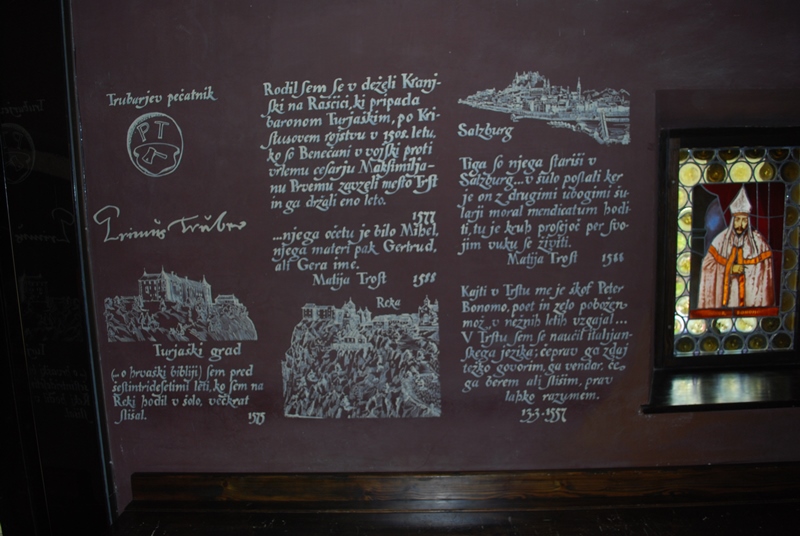 Trubarjev pečatnik
PT
Primus Truber
Turjaški grad
(...o hrvaški bibliji) sem pred
šestintridesetimi leti, ko sem na
Reki hodil v šolo, večkrat
slišal. 1575
Rodil sem se v deželi Kranj-
ski na Raščici, ki pripada
baronom Turjaškim, po Kri-
stusovem rojstvu v 1508. letu,
ko so Benečani v vojski proti
vrlemu cesarju Maksimilja-
nu Prvemu zavzeli mesto Trst
in ga držali eno leto.
1577
...njega očetu je bilo Mihel,
njega materi pak Gertrud,
ali Gera ime.
Matija Trost 1588
Reka
Salzburg
Tiga so njega stariši v
Salzburg... v šulo poslali ker
je on z drugimi ubogimi šu-
larji moral mendicatum hodi-
ti, tu je kruh prosijoč per svo-
jim vuku se živiti.
Matija Trost 1588
Kajti v Trstu me je škof Peter
Bonomo, poet in zelo pobožen
mož, v nežnih letih vzgajal...
V Trstu sem se naučil italijan-
skega jezika; čeprav ga zdaj
težko govorim, ga vendar, če
ga berem ali slišim, prav
lahko razumem.
13.3.1557